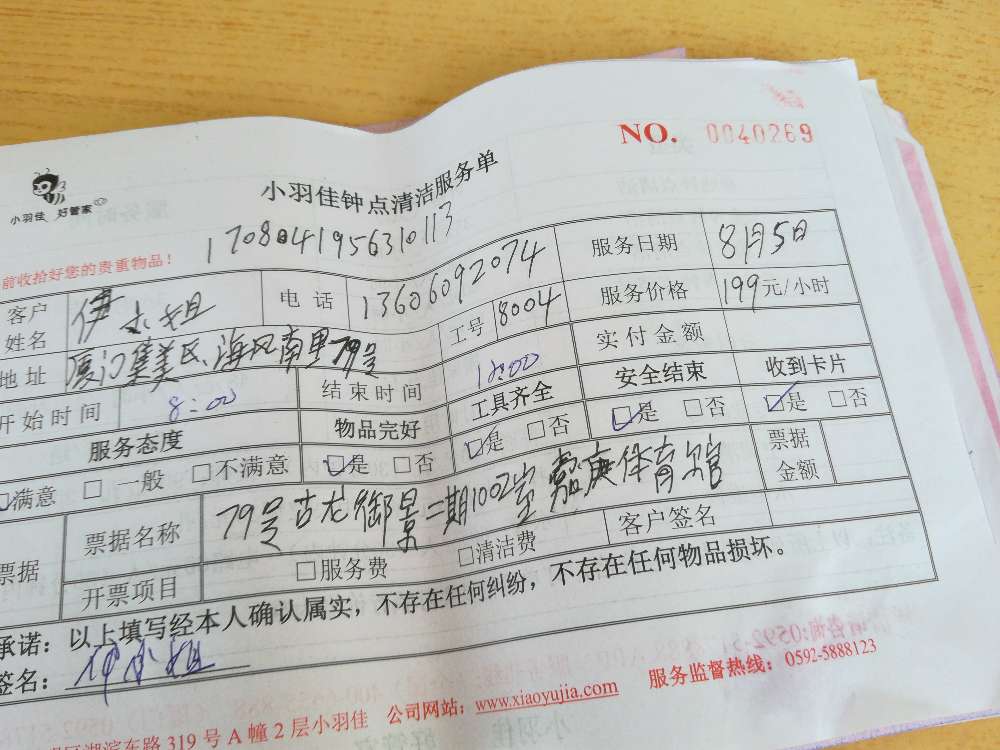 NO. 0040269
小羽佳 好管家
小羽佳钟点清洁服务单
1708041956310113
前收拾好您的贵重物品！
客户姓名 伊小姐 电话 13606092074 服务日期 8月5日
地址 厦门集美区、海风南里79号 工号 8004 服务价格 199元/小时
开始时间 8:00 结束时间 12:00 实付金额
服务态度 物品完好 工具齐全 安全结束 收到卡片
☑满意 □一般 □不满意 ☑是 □否 ☑是 □否 ☑是 □否 ☑是 □否 票据金额
票据 票据名称 79号古龙御景二期1002室嘉庚体育馆
开票项目 □服务费 □清洁费 客户签名
承诺：以上填写经本人确认属实，不存在任何纠纷，不存在任何物品损坏。
签名： 伊小姐
湖滨东路319号A幢2层小羽佳 公司网站：www.xiaoyujia.com 服务监督热线：0592-5888123